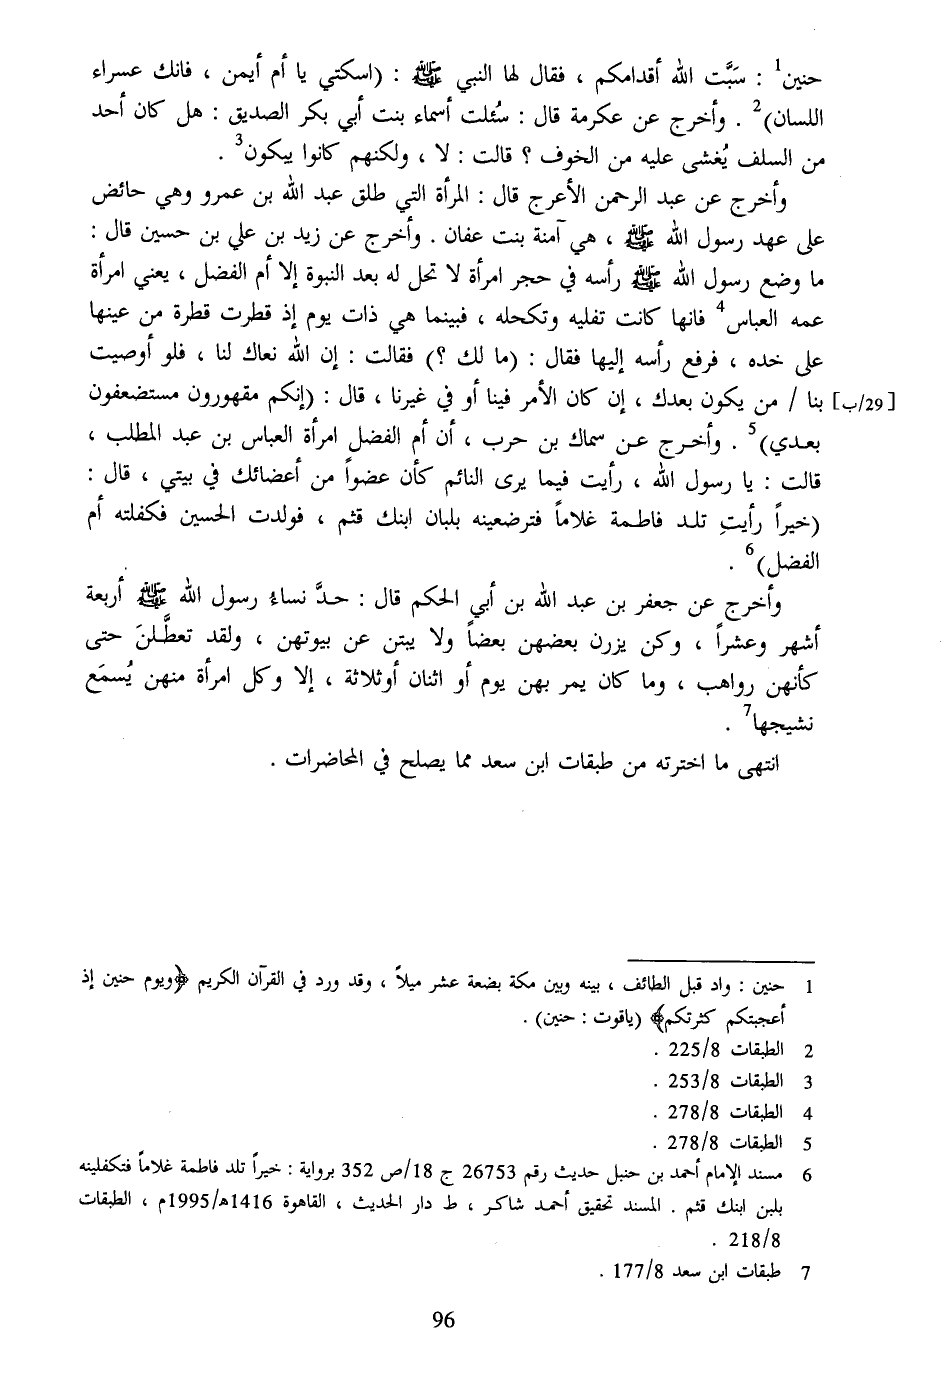 حنين1 : سَبَّت الله أقدامكم ، فقال لها النبي ﷺ : (اسكتي يا أم أيمن ، فانك عسراء
اللسان)2 . وأخرج عن عكرمة قال : سُئلت أسماء بنت أبي بكر الصديق : هل كان أحد
من السلف يُغشى عليه من الخوف ؟ قالت : لا ، ولكنهم كانوا يبكون3 .
وأخرج عن عبد الرحمن الأعرج قال : المرأة التي طلق عبد الله بن عمرو وهي حائض
على عهد رسول الله ﷺ ، هي آمنة بنت عفان . وأخرج عن زيد بن علي بن حسين قال :
ما وضع رسول الله ﷺ رأسه في حجر امرأة لا تحل له بعد النبوة إلا أم الفضل ، يعني امرأة
عمه العباس4 فانها كانت تفليه وتكحله ، فبينما هي ذات يوم إذ قطرت قطرة من عينها
على خده ، فرفع رأسه إليها فقال : (ما لك ؟) فقالت : إن الله نعاك لنا ، فلو أوصيت
[29/ب] بنا / من يكون بعدك ، إن كان الأمر فينا أو في غيرنا ، قال : (إنكم مقهورون مستضعفون
بعدي)5 . وأخرج عن سماك بن حرب ، أن أم الفضل امرأة العباس بن عبد المطلب ،
قالت : يا رسول الله ، رأيت فيما يرى النائم كأن عضواً من أعضائك في بيتي ، قال :
(خيراً رأيتِ تلد فاطمة غلاماً فترضعينه بلبان ابنك قثم ، فولدت الحسين فكفلته أم
الفضل)6 .
وأخرج عن جعفر بن عبد الله بن أبي الحكم قال : حدَّ نساءُ رسول الله ﷺ أربعة
أشهر وعشراً ، وكن يزرن بعضهن بعضاً ولا يبتن عن بيوتهن ، ولقد تعطَّلنَ حتى
كأنهن رواهب ، وما كان يمر بهن يوم أو اثنان أوثلاثة ، إلا وكل امرأة منهن يُسمَع
نشيجها7 .
انتهى ما اخترته من طبقات ابن سعد مما يصلح في المحاضرات .
1 حنين : واد قبل الطائف ، بينه وبين مكة بضعة عشر ميلاً ، وقد ورد في القرآن الكريم ﴿ويوم حنين إذ
أعجبتكم كثرتكم﴾ (ياقوت : حنين) .
2 الطبقات 225/8 .
3 الطبقات 253/8 .
4 الطبقات 278/8 .
5 الطبقات 278/8 .
6 مسند الإمام أحمد بن حنبل حديث رقم 26753 ج 18/ص 352 برواية : خيراً تلد فاطمة غلاماً فتكفلينه
بلبن ابنك قثم . المسند تحقيق أحمد شاكر ، ط دار الحديث ، القاهرة 1416ه/1995م ، الطبقات
218/8 .
7 طبقات ابن سعد 177/8 .
96